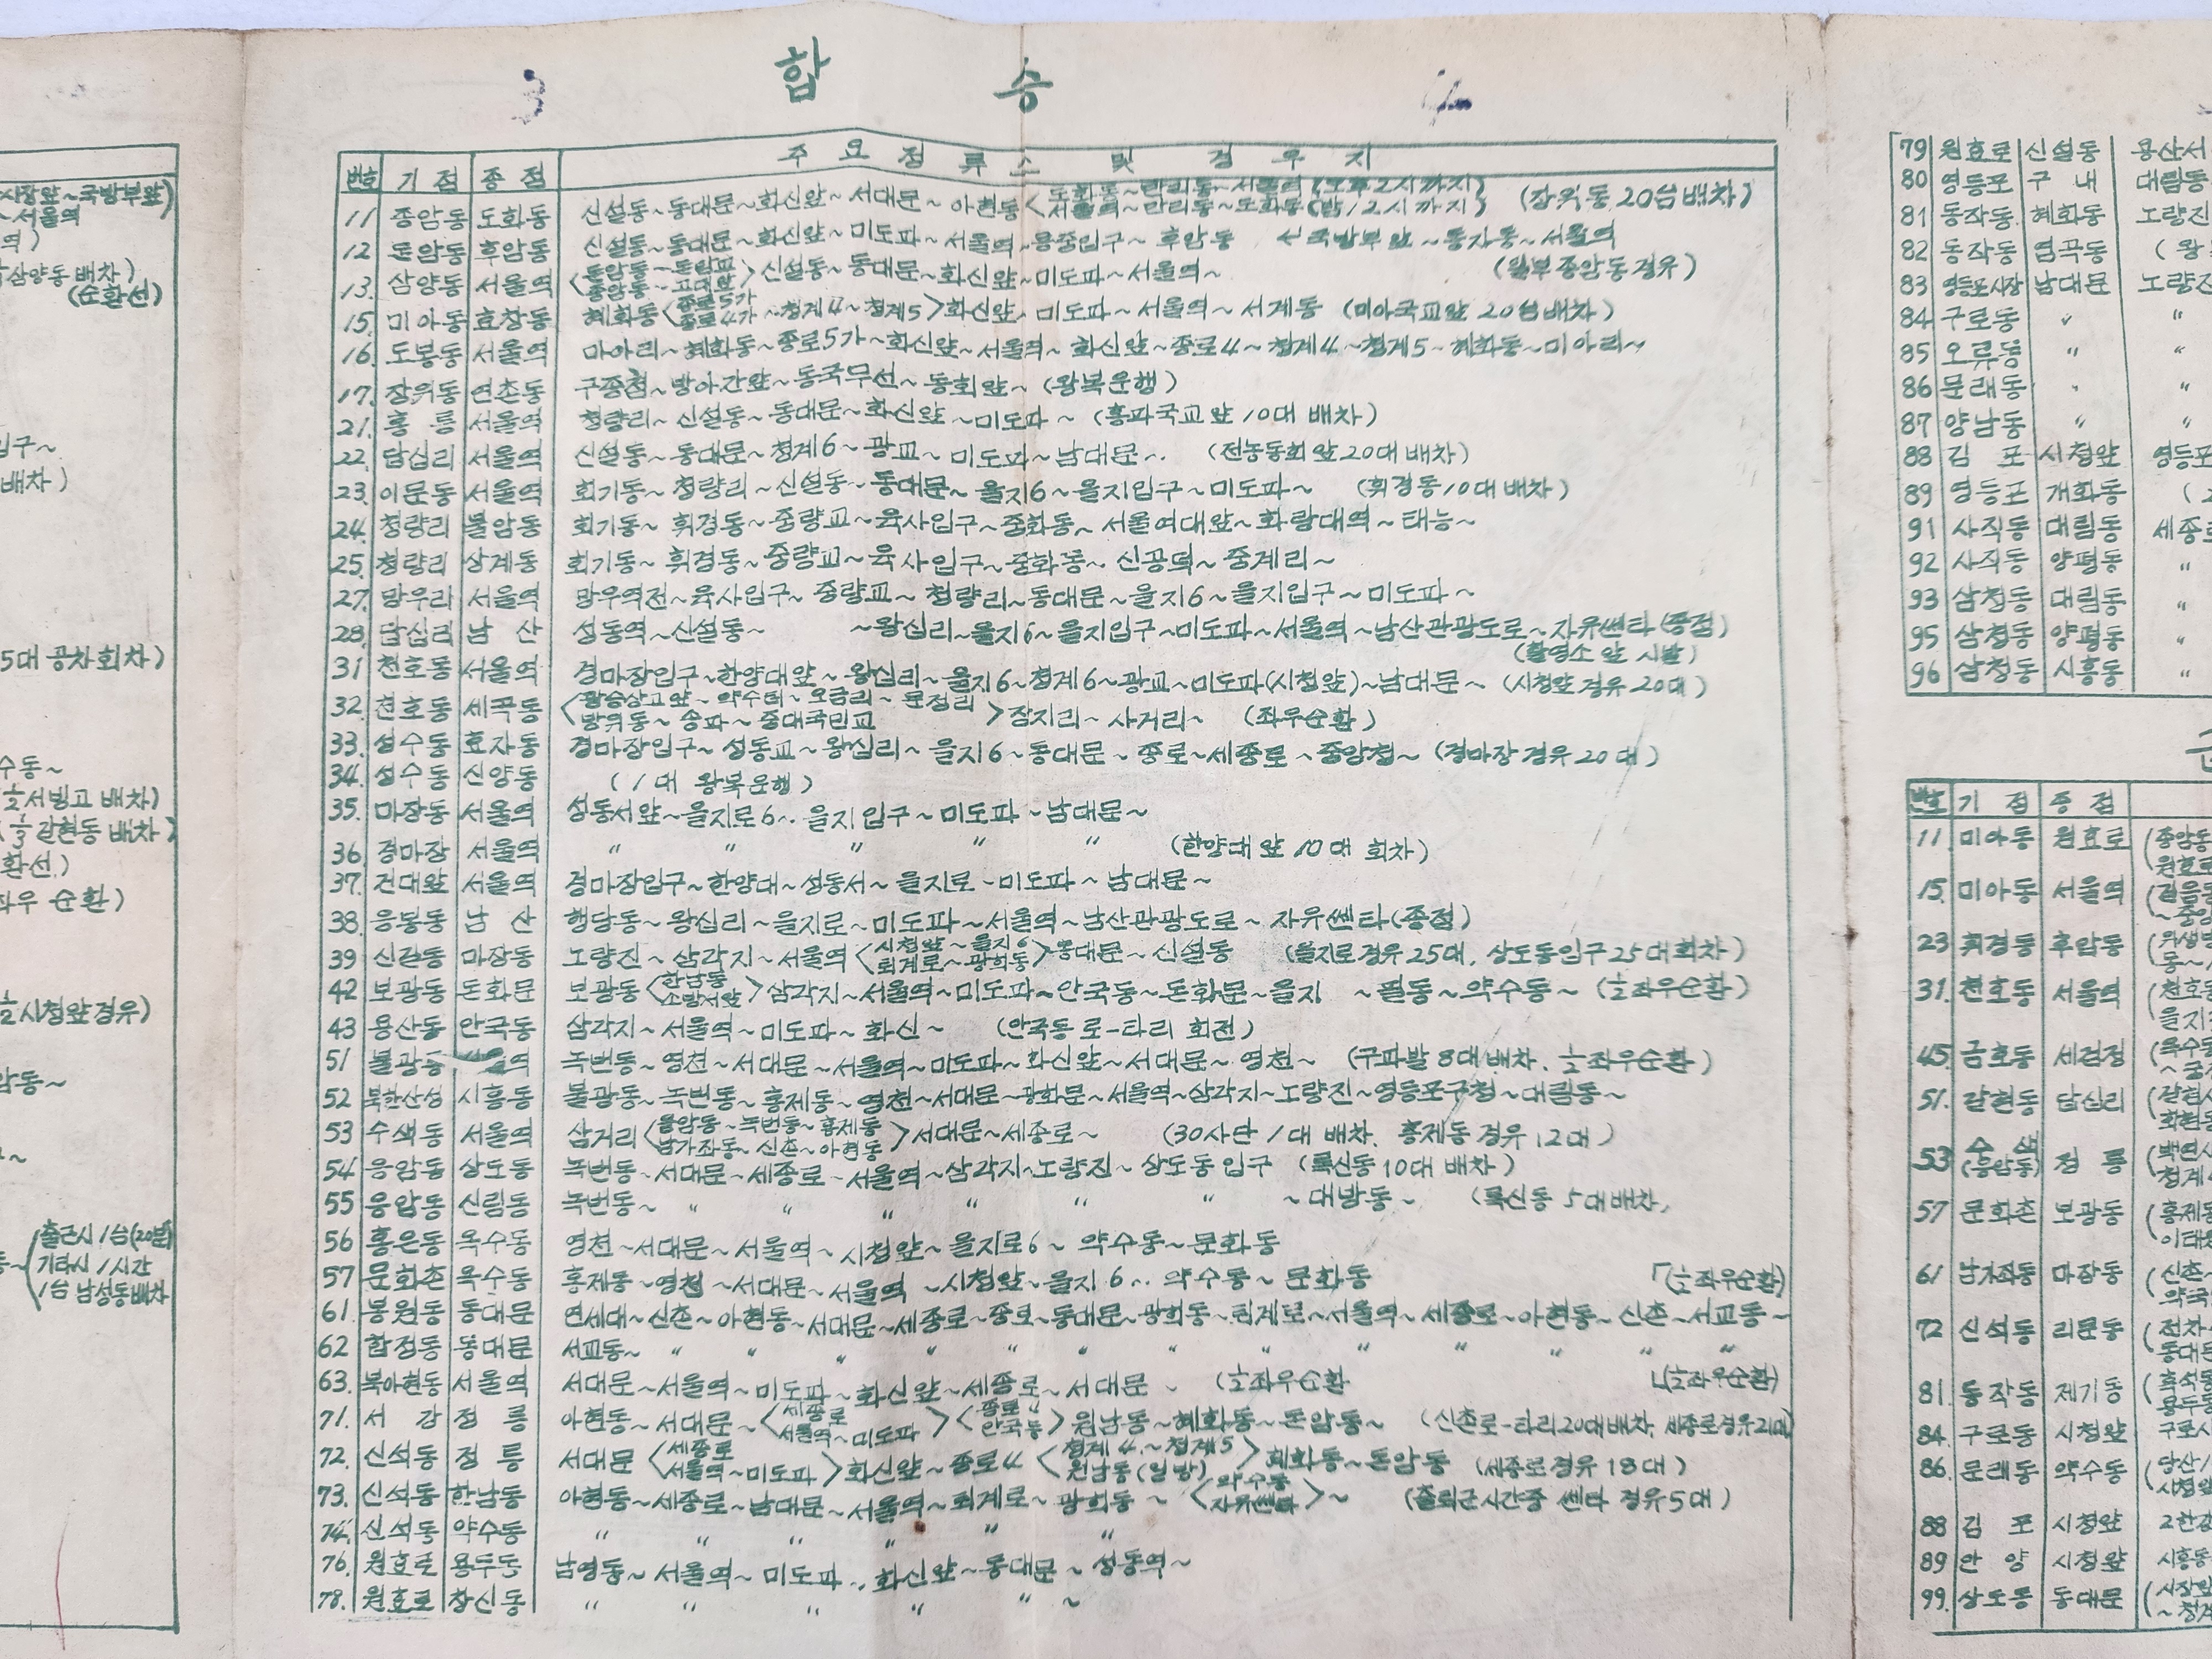 합 승
번호 기점 종점 주요정류소 및 경유지
11 종암동 도화동 신설동~동대문~화신앞~서대문~아현동<도화동~만리동~서울역(오후2시까지) 서울역~만리동~도화동(밤12시까지) (장위동 20台배차)
12 돈암동 후암동 신설동~동대문~화신앞~미도파~서울역~용중입구~후암동 국방부앞~동자동~서울역
13. 삼양동 서울역 <돈암동~돈암교 종암동~고대앞>신설동~동대문~화신앞~미도파~서울역~ (일부종암동경유)
15. 미아동 효창동 혜화동<종로5가 종로4가~청계4~청계5>화신앞~미도파~서울역~서계동 (미아국교앞 20台배차)
16. 도봉동 서울역 미아리~혜화동~종로5가~화신앞~서울역~화신앞~종로4~청계4~청계5~혜화동~미아리~
17. 장위동 연촌동 구종점~방아간앞~동국무선~동회앞~ (왕복운행)
21. 홍릉 서울역 청량리~신설동~동대문~화신앞~미도파~ (홍파국교앞 10대 배차)
22. 답십리 서울역 신설동~동대문~청계6~광교~미도파~남대문~ (전농동회앞 20대배차)
23. 이문동 서울역 회기동~청량리~신설동~동대문~을지6~을지입구~미도파~ (휘경동10대배차)
24. 청량리 불암동 회기동~휘경동~중량교~육사입구~중화동~서울여대앞~화랑대역~태능~
25. 청량리 상계동 회기동~휘경동~중량교~육사입구~중화동~신공덕~중계리~
27. 망우리 서울역 망우역전~육사입구~중량교~청량리~동대문~을지6~을지입구~미도파~
28. 답십리 남산 성동역~신설동~ ~왕십리~을지6~을지입구~미도파~서울역~남산관광도로~자유쎈타(종점)
(촬영소앞 시발)
31 천호동 서울역 경마장입구~한양대앞~왕십리~을지6~청계6~광교~미도파(시청앞)~남대문~ (시청앞경유20대)
32. 천호동 세곡동 <광승상고앞~약수터~오금리~문정리 방위동~송파~중대국민교>장지리~사거리~ (좌우순환)
33. 성수동 효자동 경마장입구~성동교~왕십리~을지6~동대문~종로~세종로~중앙청~ (경마장경유20대)
34. 성수동 신양동 (1대 왕복운행)
35. 마장동 서울역 성동서앞~을지로6~을지입구~미도파~남대문~
36. 경마장 서울역 〃 〃 〃 〃 〃 (한양대앞 10대 회차)
37. 건대앞 서울역 경마장입구~한양대~성동서~을지로~미도파~남대문~
38. 응봉동 남산 행당동~왕십리~을지로~미도파~서울역~남산관광도로~자유쎈타(종점)
39 신길동 마장동 노량진~삼각지~서울역<시청앞~을지6 퇴계로~광희동>동대문~신설동 (을지로경유25대, 상도동입구25대회차)
42 보광동 돈화문 보광동<한남동 소방서앞>삼각지~서울역~미도파~안국동~돈화문~을지 ~필동~약수동~ (½좌우순환)
43 용산동 안국동 삼각지~서울역~미도파~화신~ (안국동로-타리 회전)
51 불광동 서울역 녹번동~영천~서대문~서울역~미도파~화신앞~서대문~영천~ (구파발8대배차. ½좌우순환)
52 북한산성 시흥동 불광동~녹번동~홍제동~영천~서대문~광화문~서울역~삼각지~노량진~영등포구청~대림동~
53 수색동 서울역 삼거리<응암동~녹번동~홍제동 남가좌동~신촌~아현동>서대문~세종로~ (30사단 1대 배차. 홍제동경유12대)
54 응암동 상도동 녹번동~서대문~세종로~서울역~삼각지~노량진~상도동입구 (신동10대 배차)
55 응암동 신림동 녹번동~ 〃 〃 〃 〃 〃 〃 ~대방동~ (신동 5대배차)
56 홍은동 옥수동 영천~서대문~서울역~시청앞~을지로6~약수동~문화동
57 문화촌 옥수동 홍제동~영천~서대문~서울역~시청앞~을지6~약수동~문화동 「(½좌우순환)
61. 봉원동 동대문 연세대~신촌~아현동~서대문~세종로~종로~동대문~광희동~퇴계로~서울역~세종로~아현동~신촌~서교동~
62 합정동 동대문 서교동~ 〃 〃 〃 〃 〃 〃 〃 〃 〃 〃 〃 〃 〃
63. 북아현동 서울역 서대문~서울역~미도파~화신앞~세종로~서대문~ (½좌우순환 ㄴ(½좌우순환)
71. 서강 정릉 아현동~서대문~<세종로 서울역~미도파><종로4 안국동>원남동~혜화동~돈암동~ (신촌로-타리20대배차, 세종로경유21대)
72. 신석동 정릉 서대문<세종로 서울역~미도파>화신앞~종로4<청계4~청계5 원남동(일방)>혜화동~돈암동 (세종로경유18대)
73. 신석동 한남동 아현동~세종로~남대문~서울역~퇴계로~광희동~<약수동 자유쎈타>~ (출퇴근시간중 쎈타 경유5대)
74. 신석동 약수동 〃 〃 〃 〃 〃 〃
76. 원효로 용두동 남영동~서울역~미도파~화신앞~동대문~성동역~
78. 원효로 창신동 〃 〃 〃 〃 〃 ~
사장앞~국방부앞)
~서울역
역)
삼양동배차)
(순환선)
입구~
배차)
5대 공차회차)
수동~
½서빙고 배차)
⅓갈현동 배차)
환선)
좌우 순환)
½시청앞경유)
암동~
출근시1台(20분)
기타시 1시간
1台 남성동배차
79 원효로 신설동 용산서
80 영등포 구내 대림동
81 동작동 혜화동 노량진
82 동작동 염곡동 (왕
83 영등포시장 남대문 노량진
84 구로동 〃 〃
85 오류동 〃 〃
86 문래동 〃 〃
87 양남동 〃 〃
88 김포 시청앞 영등포
89 영등포 개화동 (
91 사직동 대림동 세종로
92 사직동 양평동 〃
93 삼청동 대림동 〃
95 삼청동 양평동 〃
96 삼청동 시흥동 〃
번호 기점 종점
11. 미아동 원효로 (종암동
원효로
15. 미아동 서울역 (길음동
~중앙
23 휘경동 후암동 (위생병
동~
31. 천호동 서울역 (천호동
을지
45. 금호동 세검정 (옥수동
51. 갈현동 답십리 (갈현
53 수색(응암동) 정릉 (백련사
청계4
57 문화촌 보광동 (홍제동
이태원
61 남가좌동 마장동 (신촌~
약국
72 신석동 리문동 (전차
동대문
81. 동작동 제기동 (흑석동
용두동
84. 구로동 시청앞 구로시
86. 문래동 약수동 (당산
시청앞
88 김포 시청앞 2한강
89 안양 시청앞 시흥동
99. 상도동 동대문 (시장앞
~청계